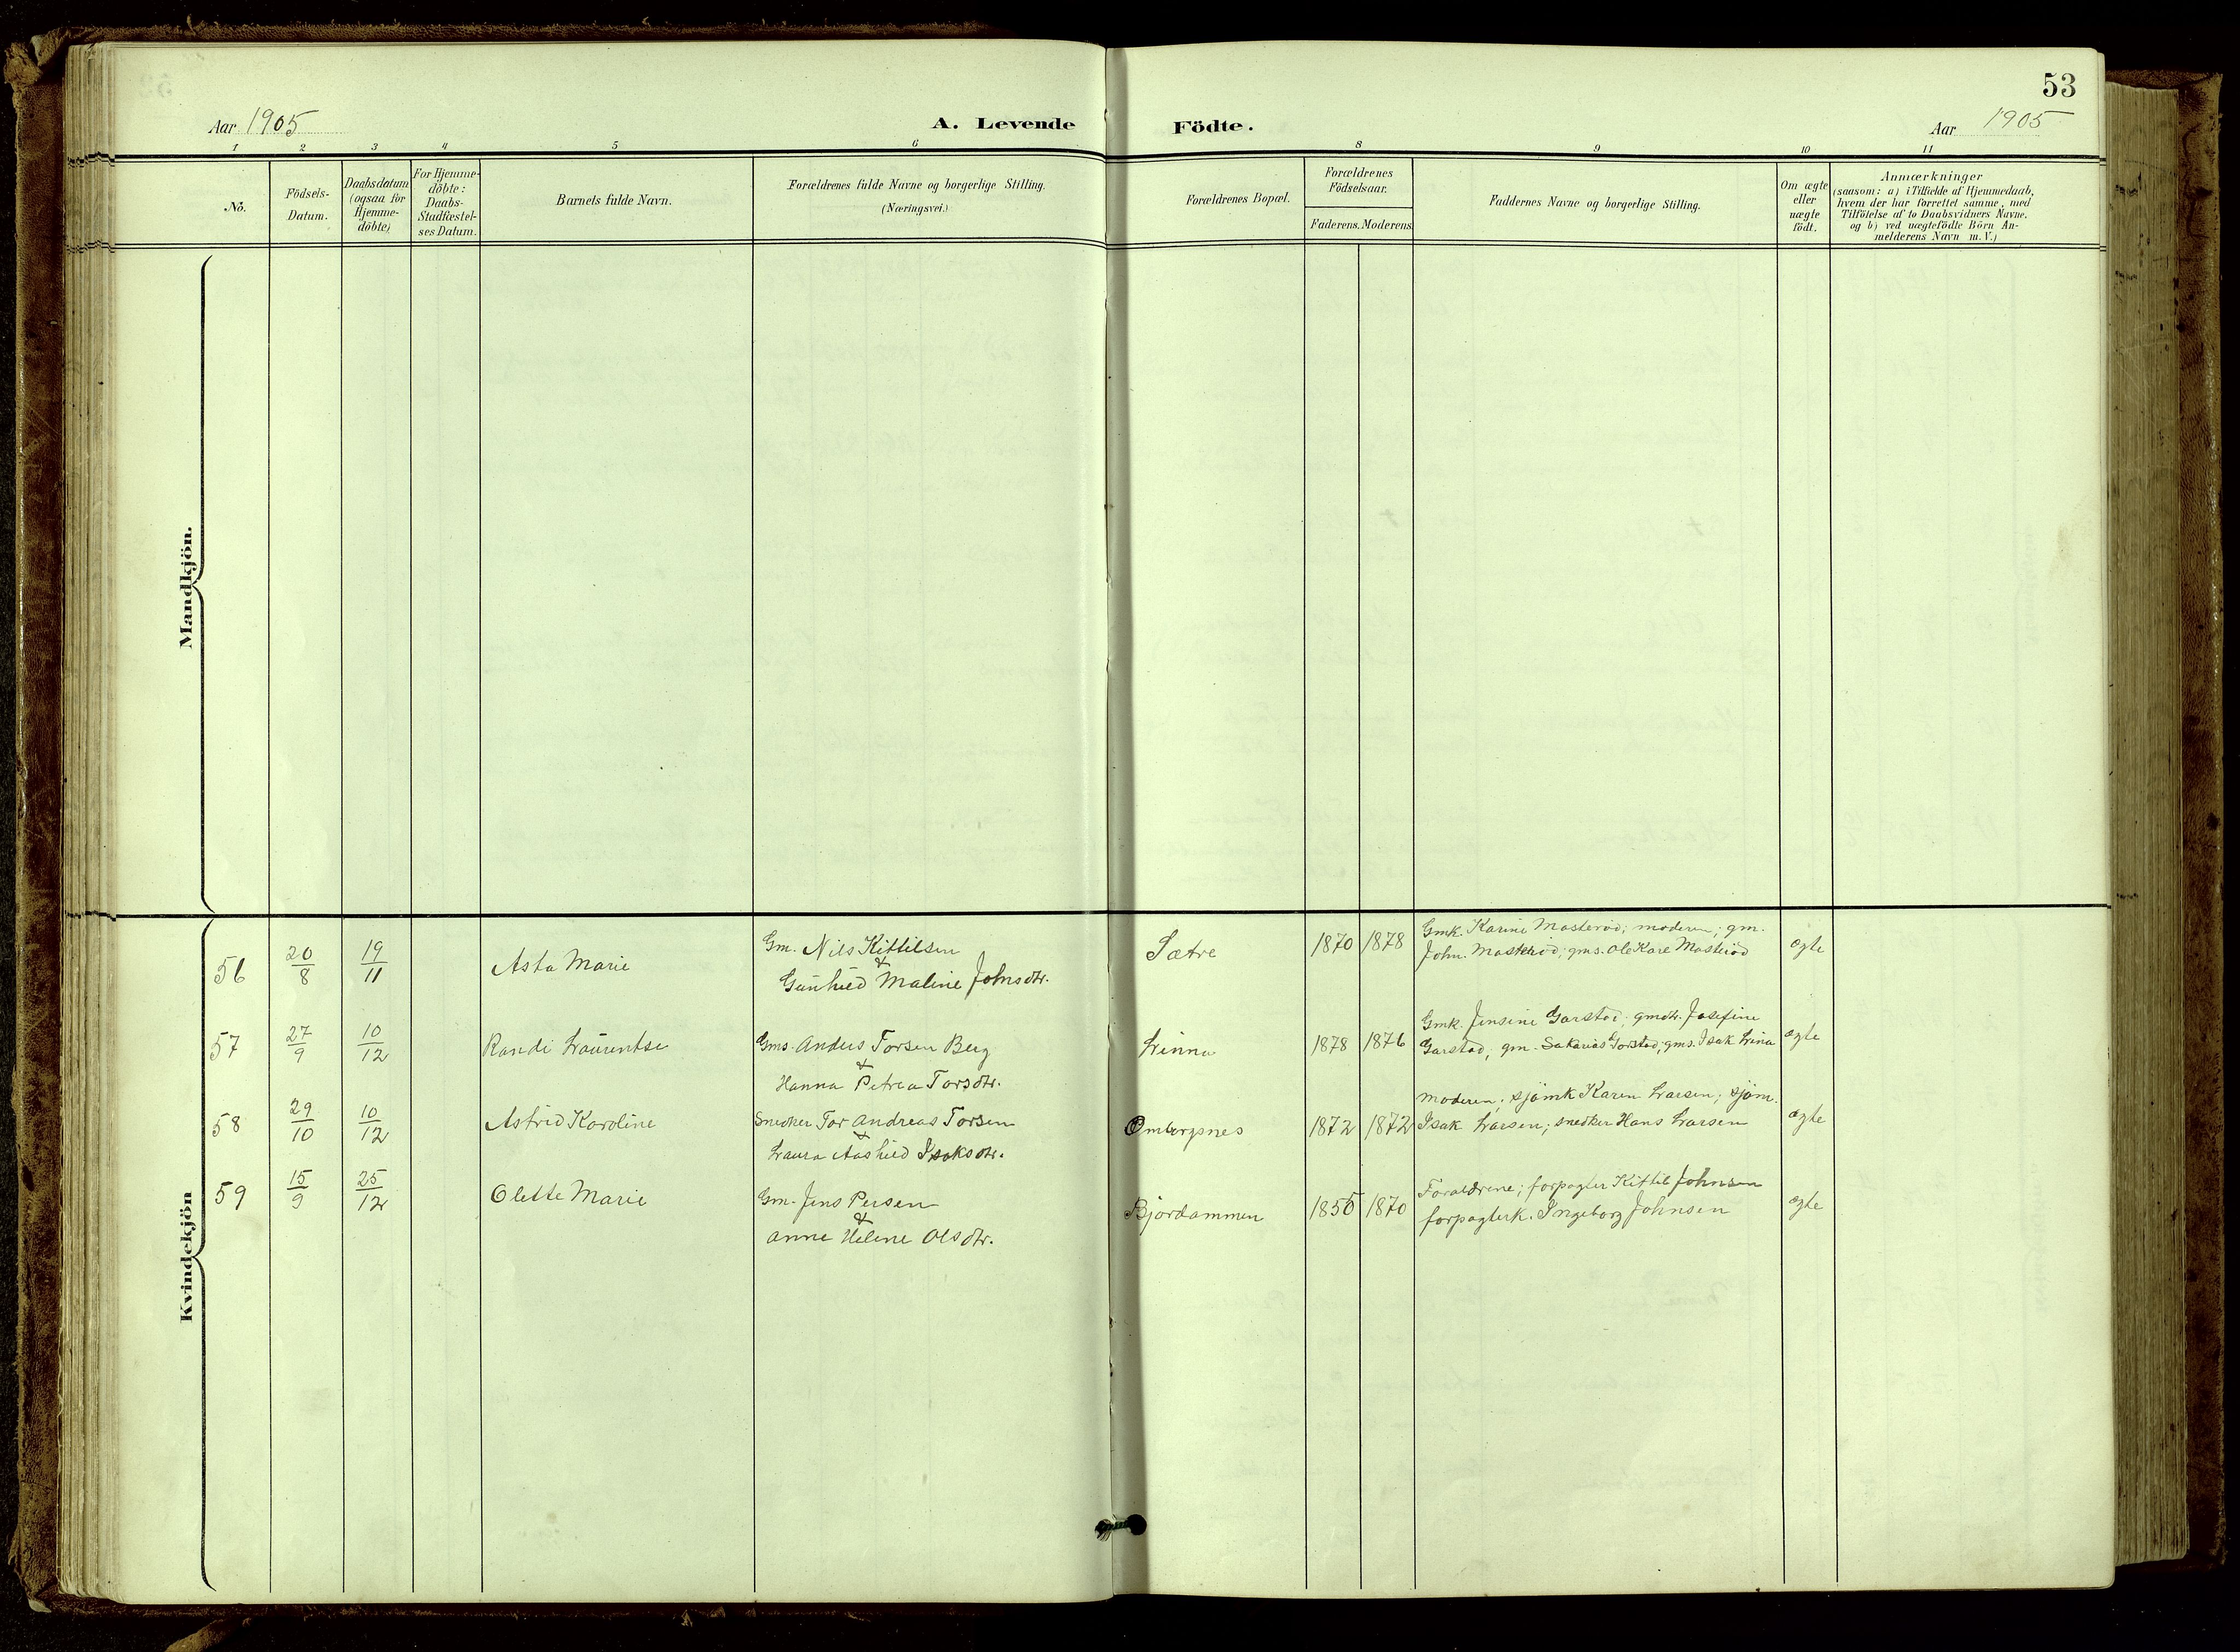 53
Aar 1905
A. Levende Födte.
Aar 1905
1 2 3 4 5 6 8 9 10 11
No.
Födsels-
Datum.
Daabsdatum
(ogsaa för
Hjemme-
döbte)
For Hjemme-
döbte:
Daabs-
Stadfæstel-
ses Datum.
Barnets fulde Navn.
Forældrenes fulde Navne og borgerlige Stilling.
(Næringsvei.)
Forældrenes Bopæl.
Forældrenes
Födselsaar.
Faderens. Moderens.
Faddernes Navne og borgerlige Stilling.
Om ægte
eller
uægte
födt.
Anmærkninger
(saasom: a) i Tilfælde af Hjemmedaab,
hvem der har forrettet samme, med
Tilföielse af to Daabsvidners Navne.
og b) ved uægtefödte Börn An-
melderens Navn m. V.)
Mandkjön.
Kvindekjön
56 20/8 19/11 Asta Marie
Gm. Nils Kittilsen
&
Gunhild Maline Johnsdtr.
Sætre 1870 1878
Gmk. Karine Masteröd; moderen; gm.
John. Masteröd; gms. Ole Kare Masteröd
ægte
57 27/9 10/12 Randi Laurentse
Gms. Anders Torsen Berg
&
Hanna Petrea Torsdtr.
Linna 1878 1876
Gmk. Jensine Garstad; gmdtr. Josefine
Garstad, gm. Sakarias Garstad; gms. Isak Linna
ægte
58 29/10 10/12 Astrid Karoline
Snedker Tor Andreas Torsen
&
Laura Aashild Isaksdtr.
Omborgsnes 1872 1872
Moderen; sjömk Karen Larsen; sjöm.
Isak Larsen; snedker Hans Larsen
ægte
59 15/9 25/12 Olette Marie
Gm. Jens Persen
&
Anne Helene Olsdtr.
Bjordammen 1855 1870
Forældrene; forpagter Kittil Johnsen
forpagterk. Ingeborg Johnsen
ægte